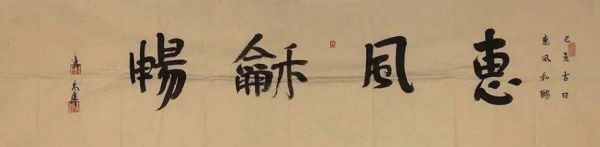 己亥吉日
惠風和暢
惠風龢暢